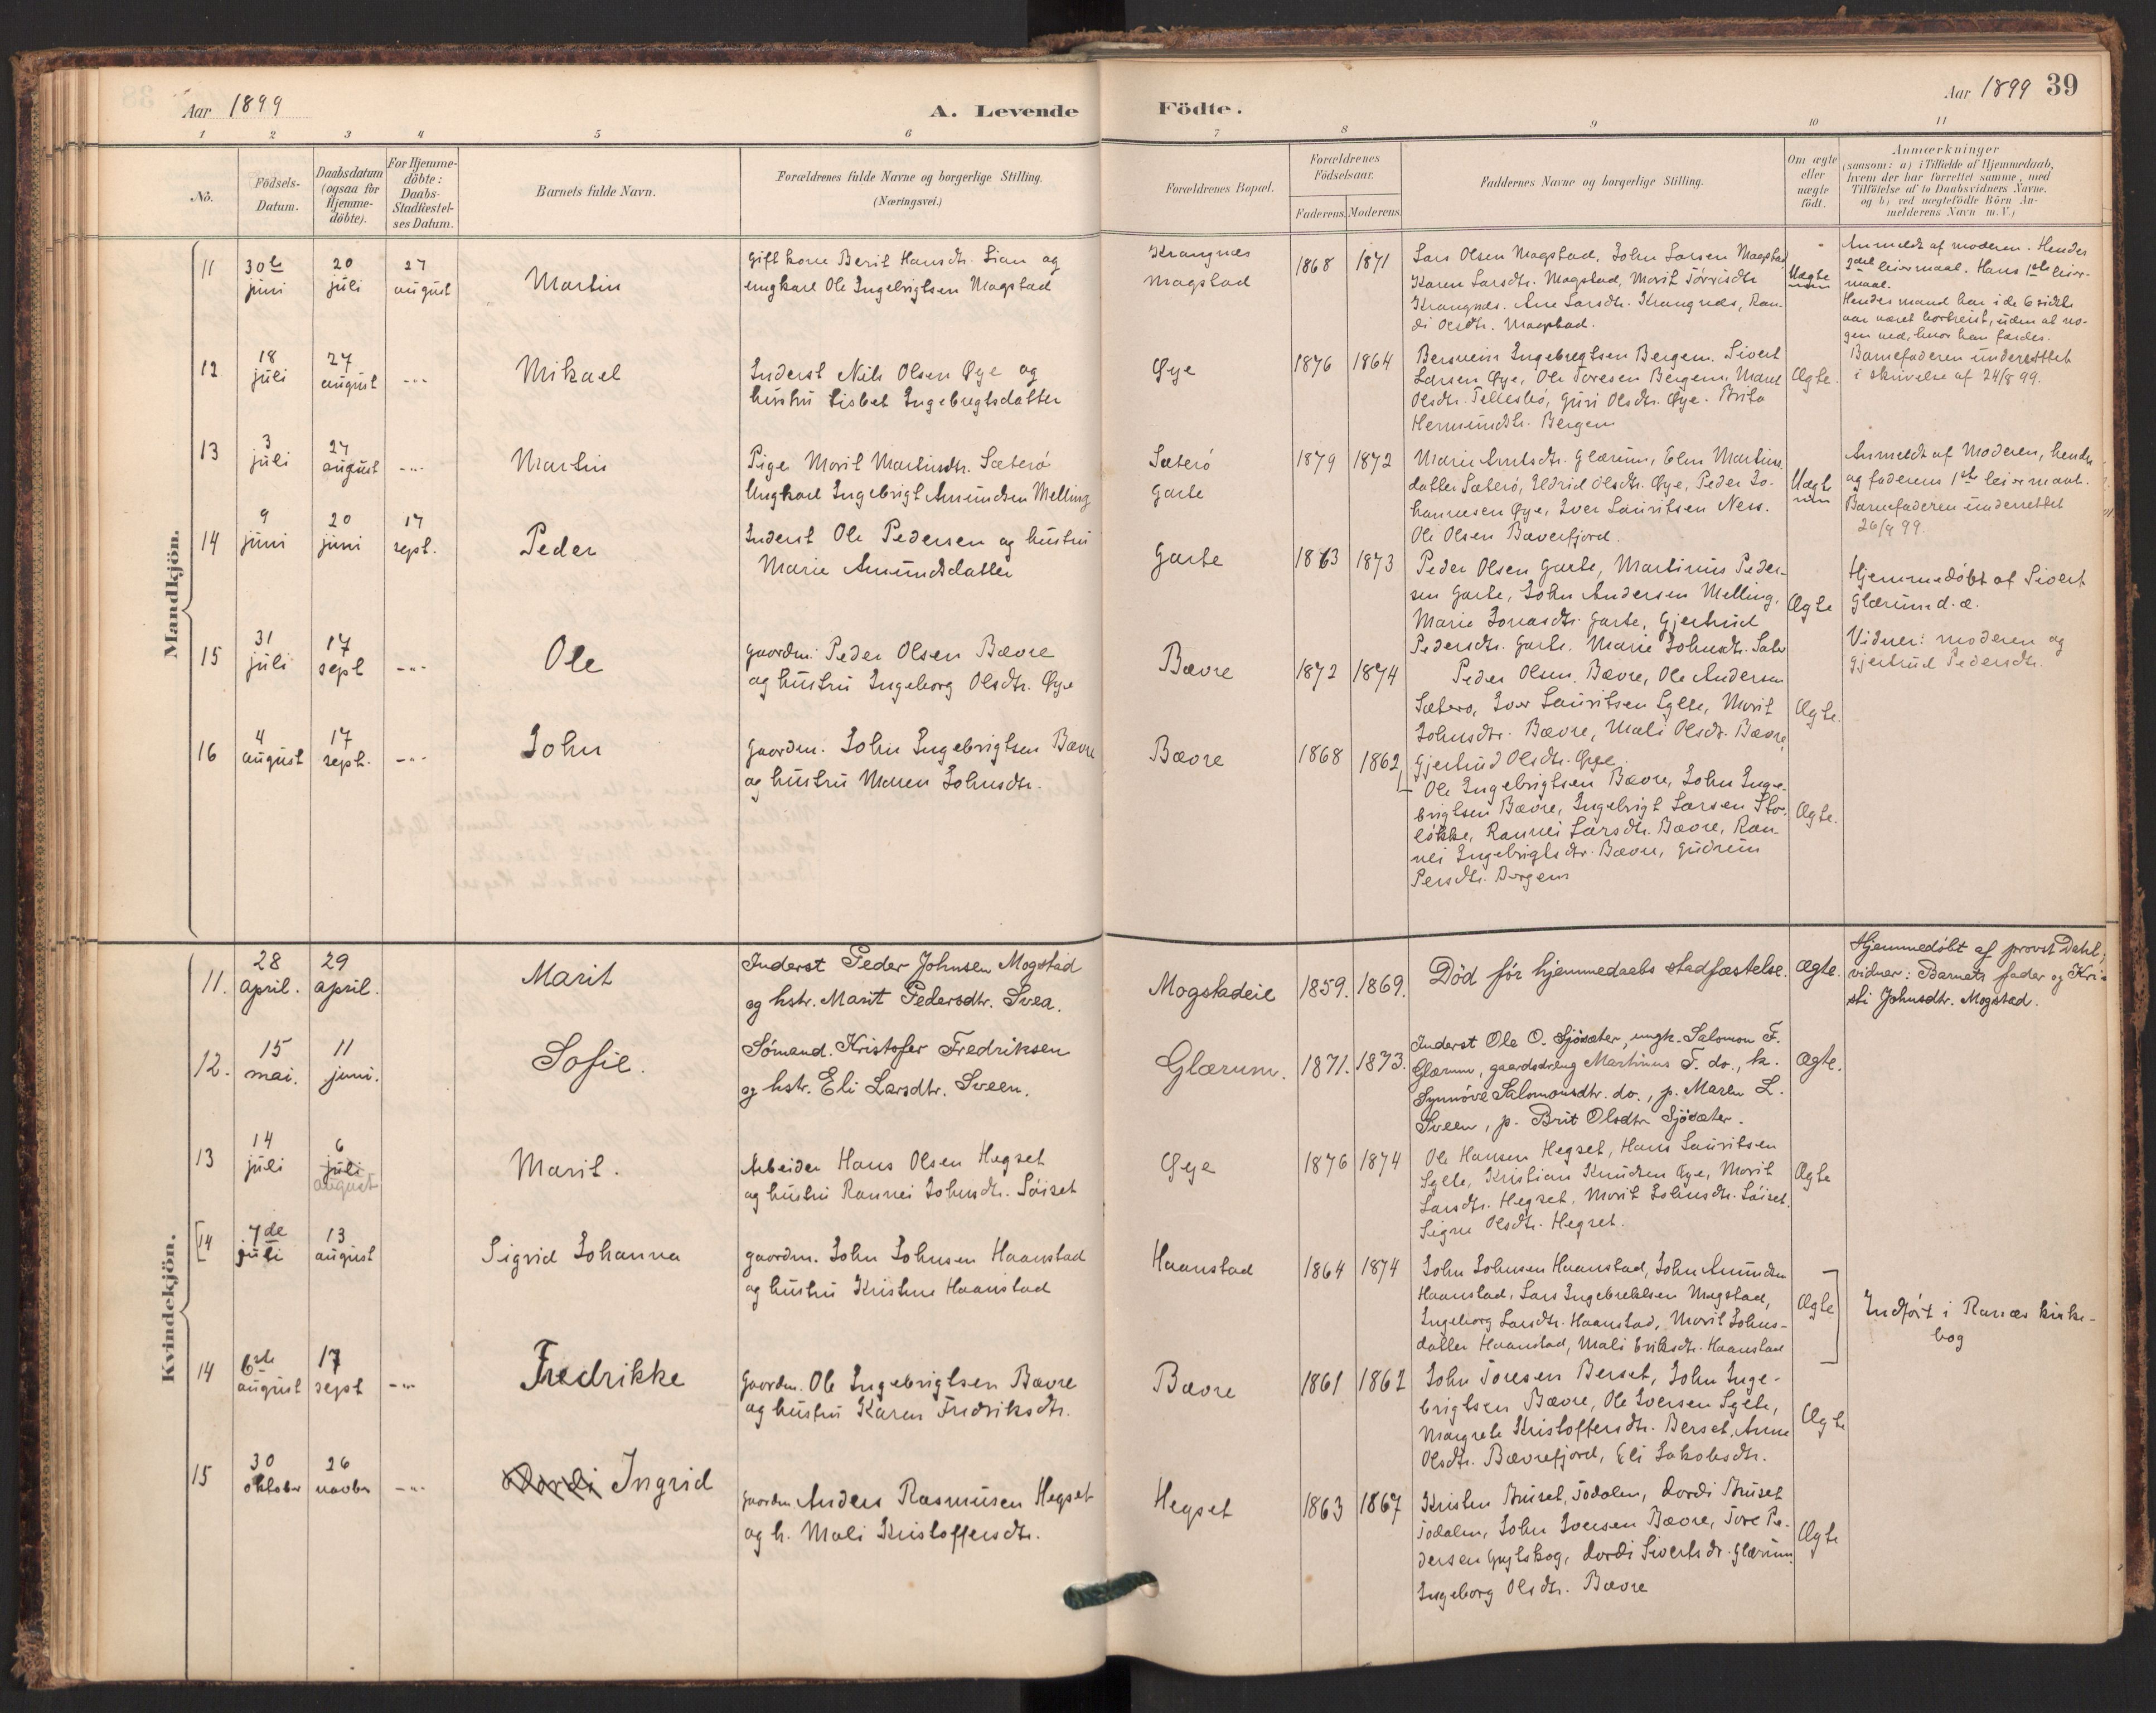 Aar 1899
A. Levende
Födte.
Aar 1899 39
1 2 3 4 5 6 7 8 9 10 11
No.
Födsels-
Datum.
Daabsdatum
(ogsaa for
Hjemme-
döbte).
For Hjemme-
döbte:
Daabs-
Stadfæstel-
ses Datum.
Barnets fulde Navn.
Forældrenes fulde Navne og borgerlige Stilling.
(Næringsvei.)
Forældrenes Bopæl.
Forældrenes
Födselsaar.
Faderens. Moderens.
Faddernes Navne og borgerlige Stilling.
Om ægte
eller
uægte
født.
Anmærkninger
(saasom: a) i Tilfælde af Hjemmedaab,
hvem der har forrettet samme, med
Tilföielse af to Daabsvidners Navne.
og b) ved uægtefödte Börn An-
melderens Navn m. V.)
Mandkjön.
11
30te
juni
20
juli
27
august
Martin
Gift kone Berit Hansdtr. Lian og
ungkarl Ole Ingebrigtsen Magstad
Krangnæs
Magstad
1868 1871
Lars Olsen Magstad, John Larsen Magstad
Karen Larsdtr. Magstad, Marit
Krangnæs. Ane Larsdtr. Krangnæs, Ran-
di Olsdtr. Magstad.
Uægte
Anmeldt af moderen. Hendes
2det leiermaal. Hans 1ste leier-
maal.
Hendes mand har i de 6 sidste
aar været bortreist, uden at no-
gen ved, hvor han færdes.
Barnefaderen underrettet
i skrivelse af 24/8 99.
12
18
juli
27
august
-"-
Mikael
Inderst Nils Olsen Øye og
hustru Lisbet Ingebregtsdatter
Øye
1876 1864
Bersvein Ingebregtsen Bergem. Sivert
Larsen Øye, Ole Toresen Bergem, Maret
Olsdtr. Tellesbø, Guri Olsdtr. Øye. Brita
Hermundstr. Bergem
Ægte.
13
3
juli
27
august
-"-
Martin
Pige Marit Martinsdtr. Sæterø
Ungkarl Ingebrigt Amundsen Melling
Sæterø
Garte
1879 1872
Marie Arntsdtr. Glærum, Elen Martins-
datter Sæterø, Eldrid Olsdtr. Øye, Peder Jo-
hannesen Øye, Iver Lauritsen Ness.
Ole Olsen Bæverfjord.
Uægte
Anmeldt af Moderen, hendes
og faderens 1ste leiermaal.
Barnefaderen underrettet
26/9 99.
14
9
juni
20
juni
17
sept.
Peder
Inderst Ole Pedersen og hustru
Marie Amundsdatter
Garte
1863 1873
Peder Olsen Garte, Martinus Peder-
sen Garte, John Andersen Melling,
Marie Jonasdtr. Garte, Gjertrud
Pedersdtr. Garte. Marie Johnsdtr. Sæter
Ægte
Hjemmedöbt af Sivert
Glærum d. æ.
Vidner: moderen og
Gjertrud Pedersdtr.
15
31
juli
17
sept
-"-
Ole
Gaardm. Peder Olsen Bævre
og hustru Ingeborg Olsdtr. Øye
Bævre
1872 1874
Peder Olsen Bævre, Ole Andersen
Sæterø, Iver Lauritsen Sylte, Marit
Johnsdtr. Bævre, Mali Olsdtr. Bævre,
Gjertrud Olsdtr. Øye.
Ægte.
16
4
august
17
sept.
-"-
John
Gaardm. John Ingebrigtsen Bævre
og hustru Maren Johnsdtr.
Bævre
1868 1862
Ole Ingebrigtsen Bævre, John Inge-
brigtsen Bævre, Ingebrigt Larsen Sto-
løkke, Rannei Larsdtr. Bævre, Ran-
nei Ingebrigtsdtr. Bævre, Gudrun
Persdtr. Bergem
Ægte.
Kvindekjön.
11.
28
april.
29
april.
Marit
Inderst Peder Johnsen Mogstad
og hstr. Marit Pedersdtr. Svea.
Mogstadeie
1859. 1869.
Död før hjemmedaabs stadfæstelse.
Ægte.
Hjemmedöbt af provst Dahl;
vidner: Barnets fader og Kri-
sti Johnsdtr. Mogstad.
12.
15
mai.
11
juni.
Sofie.
Sömand. Kristofer Fredriksen
og hstr. Eli Larsdtr. Sveen.
Glærum.
1871. 1873.
Inderst Ole O. Sjösæter, ungk. Salomon F.
Glærum, gaardsdreng Martinus F. do., k.
Synnöve Salomonsdtr. do., p. Maren L.
Sveen, p. Brit Olsdtr. Sjösæter.
Ægte.
13
14
juli
6
juli
august
Marit.
Arbeider Hans Olsen Hegset
og hustru Rannei Johnsdtr. Søiset
Øye
1876 1874
Ole Hansen Hegset, Hans Lauritsen
Sylte, Kristian Knudsen Øye, Marit
Larsdtr. Hegset, Marit Johnsdtr. Søiset.
Signe Olsdtr. Hegset.
Ægte
14
7de
juli
13
august
Sigrid Johanna
Gaardm. John Johnsen Haanstad
og hustru Kristine Haanstad
Haanstad
1864 1874
John Johnsen Haanstad, John Amundsen
Haanstad, Lars Ingebrektsen Magstad,
Ingeborg Larsdtr. Haanstad, Marit Johns-
datter Haanstad, Mali Eriksdtr. Haanstad
Ægte
Indført i Ranæs kirke-
bog
14
6te
august
17
sept
-"-
Fredrikke
Gaardm. Ole Ingebrigtsen Bævre
og hustru Karen Fredriksdtr.
Bævre
1861 1862
John Toresen Berset, John Inge-
brigtsen Bævre, Ole Iversen Sylte,
Margrete Kristoffersdtr. Berset, Anne
Olsdtr. Bævrefjord, Eli Jakobsdtr.
Ægte
15
30
oktober
26
novbr
-"-
Dordi Ingrid
Gaardm. Anders Rasmusen Hegset
og h. Mali Kristoffersdtr.
Hegset
1863 1867
Kristen Bruset, Todalen, Dordi Bruset
Todalen, John Iversen Bævre, Tore Pe-
dersen Grytskog, Dordi Sivertsdr. Glærum.
Ingeborg Olsdtr. Bævre
Ægte